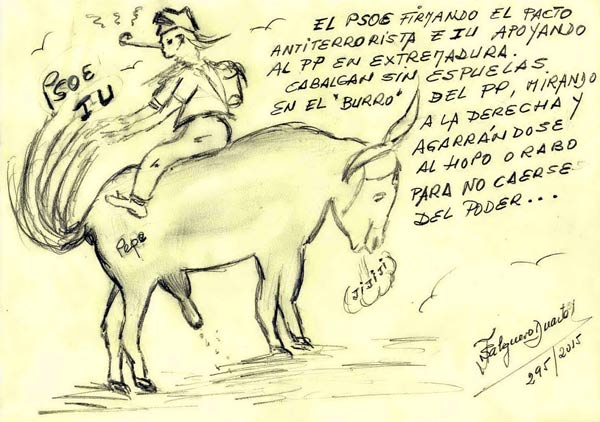 EL PSOE FIRMANDO EL PACTO
ANTITERRORISTA E IU APOYANDO
AL PP EN EXTREMADURA.
CABALGAN SIN ESPUELAS
EN EL "BURRO" DEL PP, MIRANDO
A LA DERECHA Y
AGARRÁNDOSE
AL HOPO O RABO
PARA NO CAERSE
DEL PODER...
PSOE
IU
Pepe
(JIJIJI)
Salguero Duarte
295/2015